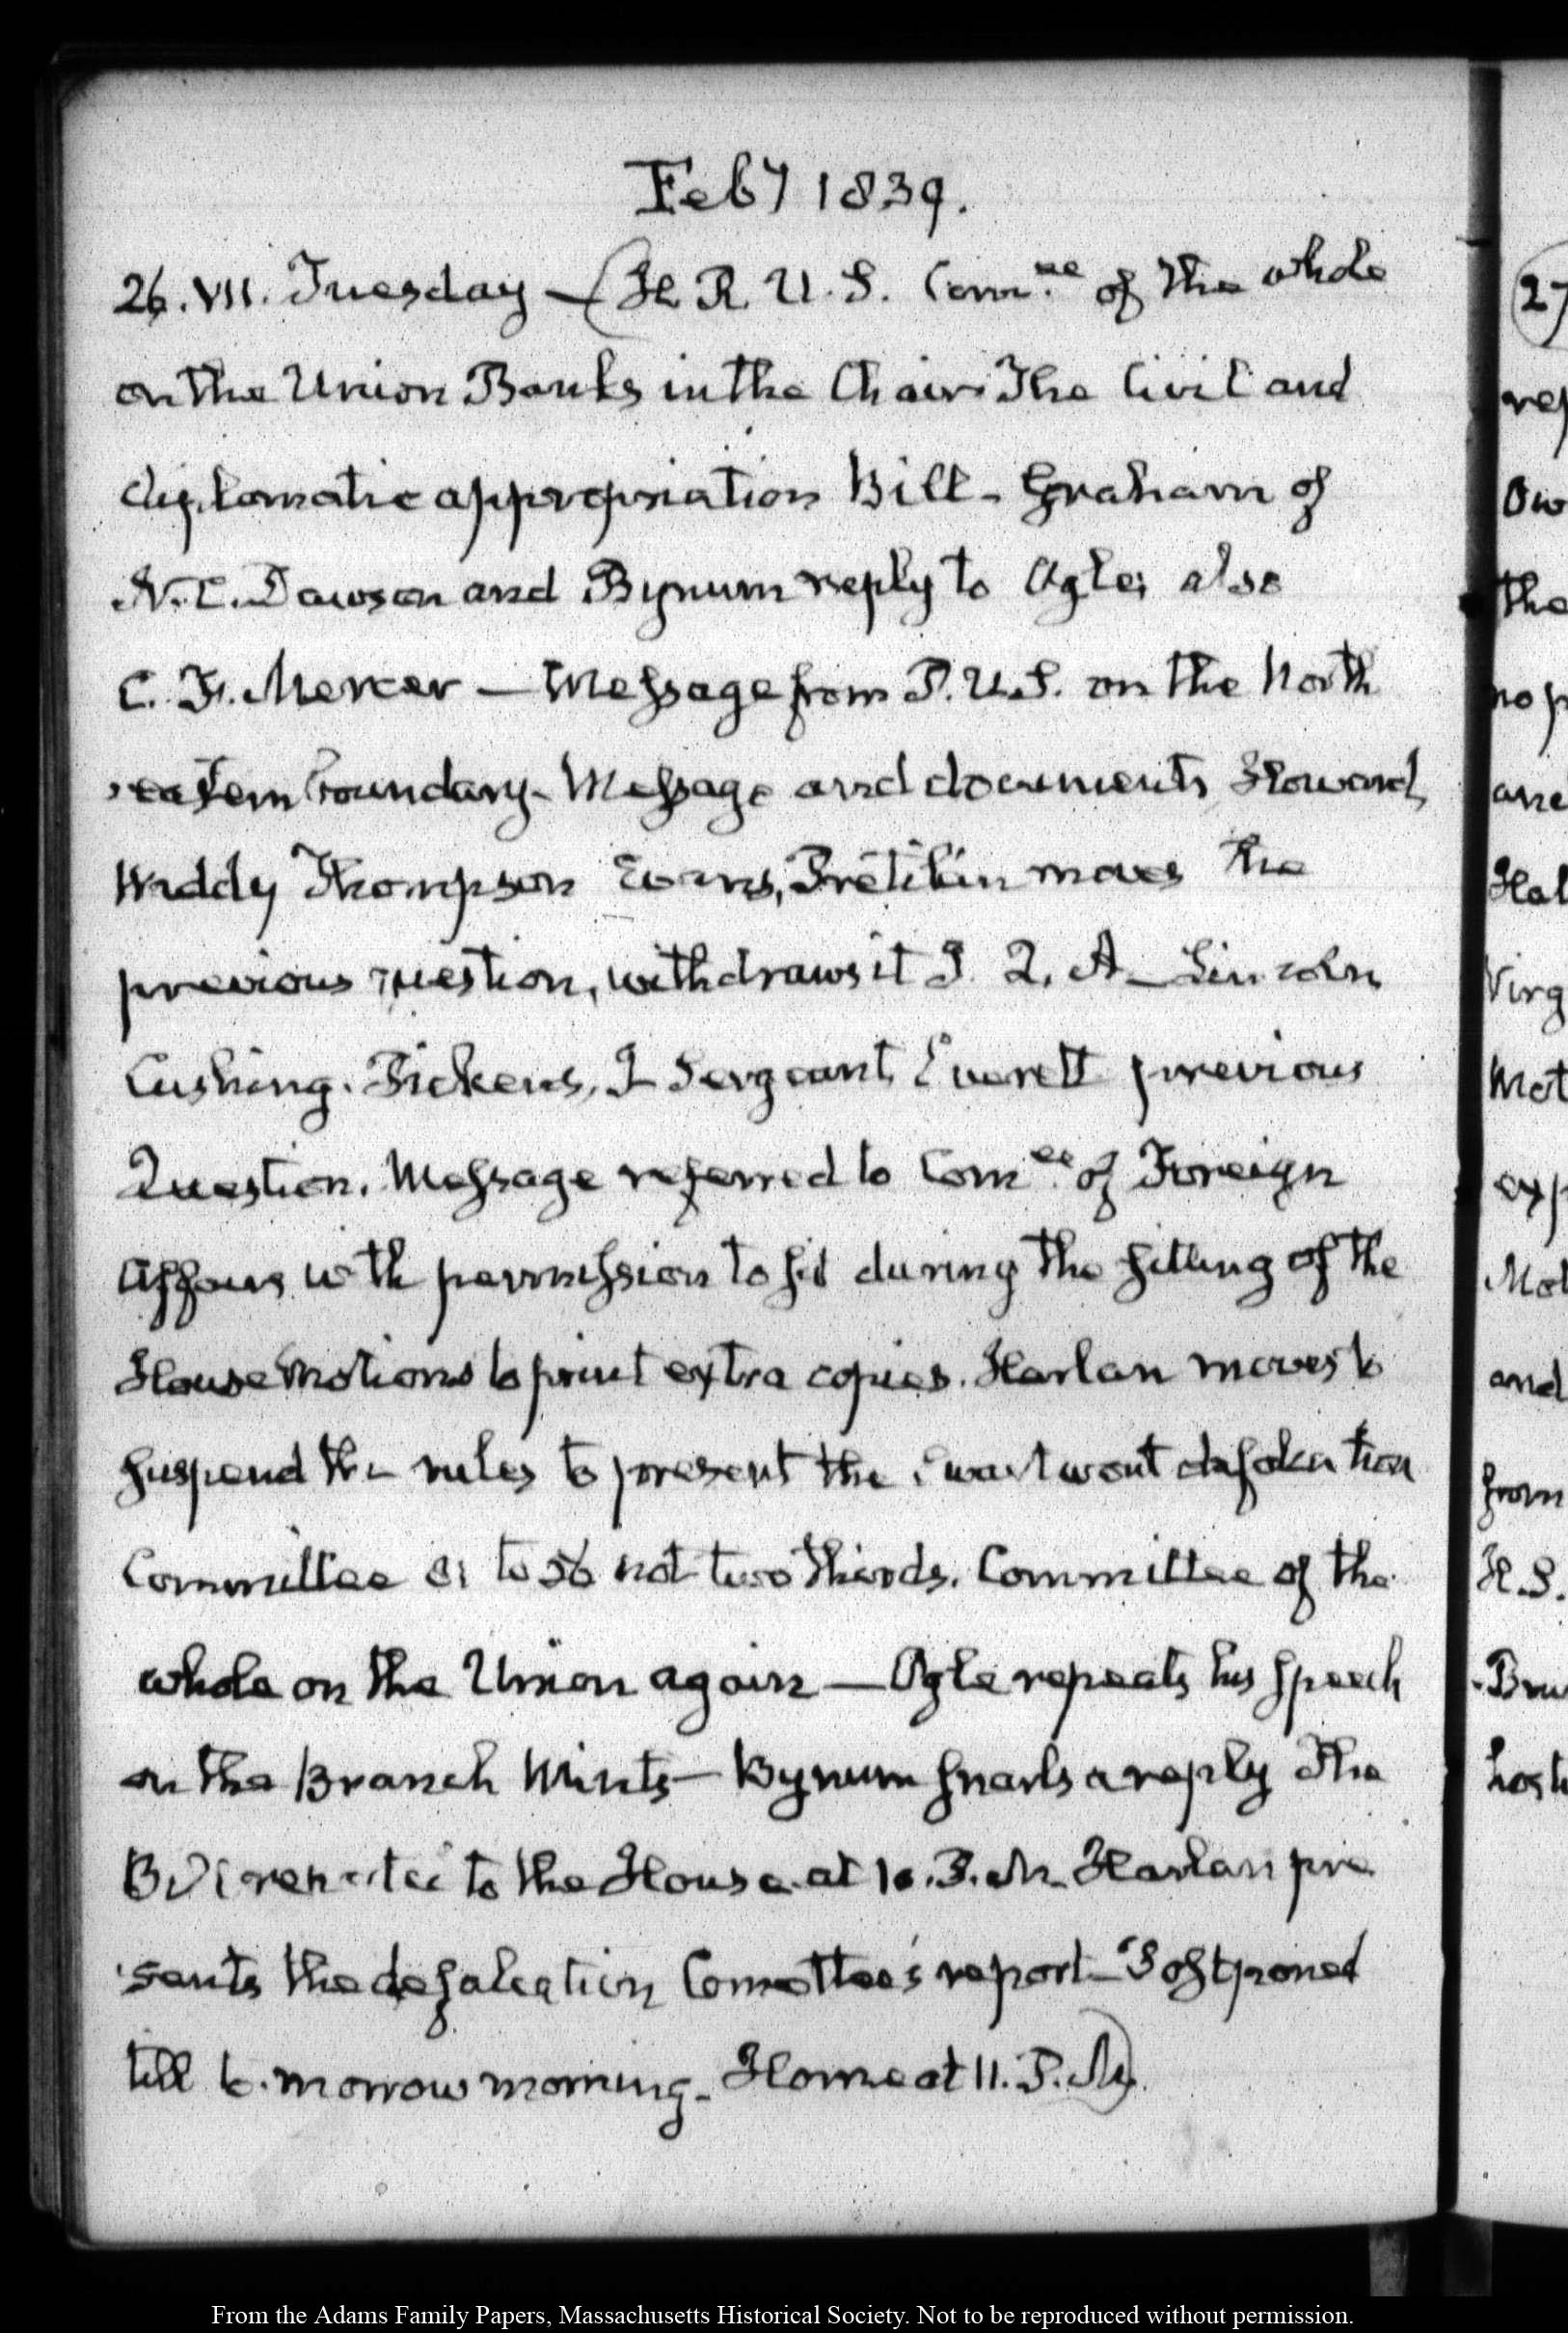 Feby 1839.
26. VII. Tuesday — (H R U. S. Comm.ee of the whole
on the Union Banks in the Chair The Civil and
diplomatic appropriation Bill — Graham of
N. C. Dawson and Bynum reply to Ogle; also
C. F. Mercer — Message from P. U. S. on the North
eastern boundary — Message and documents Howard,
Waddy Thompson Evans, Petrikin moves the
previous question, withdraws it J. Q. A — Lincoln
Cushing. Pickens, J Sergeant, Everett previous
Question. Message referred to Com.ee of Foreign
Affairs with permission to sit during the sitting of the
House Motions to print extra copies. Harlan moves to
suspend the rules to present the Swartwout defalcation
Committee 81 to 56 not two thirds. Committee of the
whole on the Union again — Ogle repeats his speech
on the Branch Mints — Bynum snarls a reply The
Bill reported to the House at 10. P. M. Harlan pre
sents the defalcation Committee's report — Postponed
till to-morrow morning — Home at 11. P. M.)
(27
Ow
the
no p
Hal
Virg
Mot
exp
Mot
and
from
H. S.
From the Adams Family Papers, Massachusetts Historical Society. Not to be reproduced without permission.